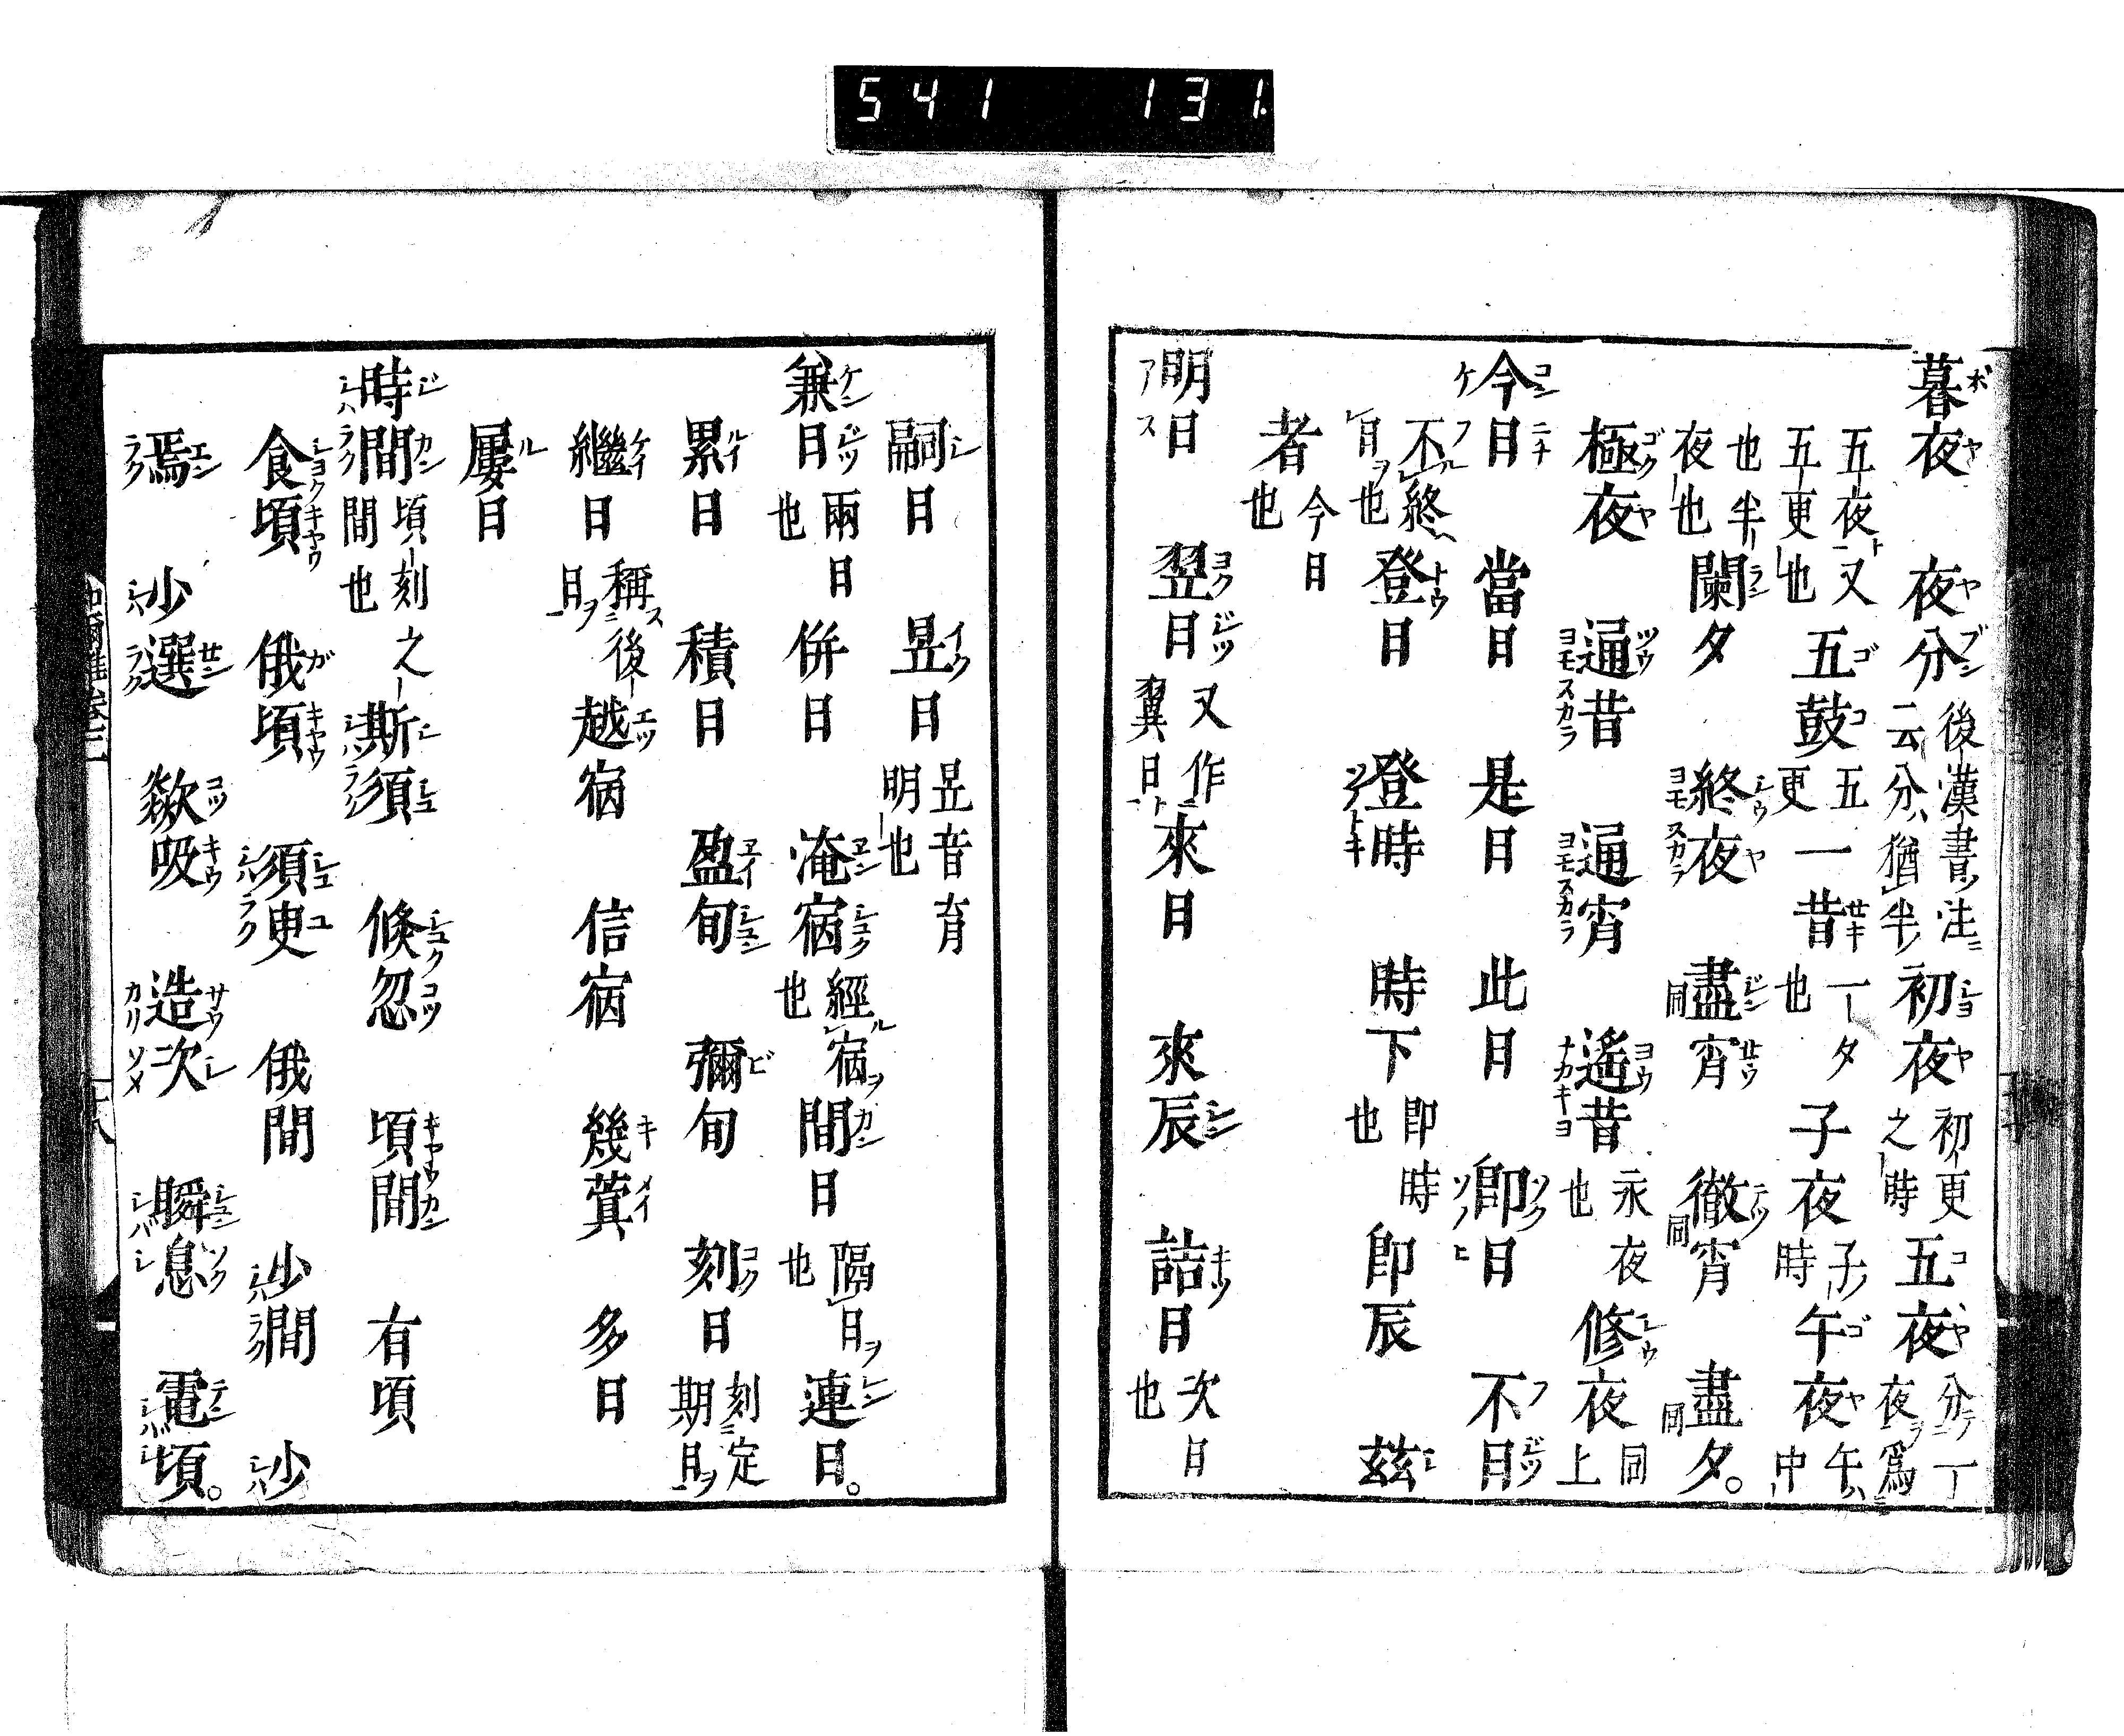 541 131
暮夜 夜分 後漢書注云分猶半 初夜 初更之時 五夜 分一夜爲
五夜又五更也 五鼓 五更 一昔 一夕也 子夜 子時 午夜 午中
也半夜也 闌夕 終夜 盡宵 同 徹宵 同 盡夕 同
極夜 通昔 通宵 遙昔 永夜也 修夜 同上
今日 當日 是日 此日 即日 不日
不終日也 登日 登時 時下 即時也 即辰 茲
者 今日也
明日 翌日 又作翼日 來日 來辰 詰日 次日也
嗣日 昱日 昱音育明也
兼日 兩日也 併日 淹宿 經宿也 間日 隔日也 連日
累日 積日 盈旬 彌旬 刻日 刻定期日
繼日 稱後日 越宿 信宿 幾蓂 多日
屢日
時間 頃刻之間也 斯須 倏忽 頃間 有頃
食頃 俄頃 須臾 俄間 少間 少
焉 少選 欻吸 造次 瞬息 電頃